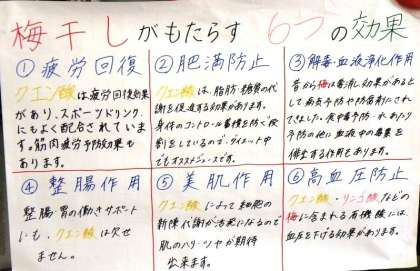 梅干しがもたらす 6つの効果
① 疲労回復
クエン酸は疲労回復効果
があり、スポーツドリンク
にもよく配合されていま
す。筋肉疲労予防効果も
あります。
② 肥満防止
クエン酸は、脂肪・糖質の代
謝を促進する効果があります。
身体のコントロール蓄積を防ぐ役
割をしているので、ダイエット中
でもオススメジュースです。
③ 解毒・血液浄化作用
昔から梅は毒消し効果があると
して病気予防や防腐剤にされ
てきました。食中毒予防・水あたり
予防の他に血液中の毒素を
排出する作用もあります。
④ 整腸作用
整腸・胃の働きサポート
にも、クエン酸は欠せ
ません。
⑤ 美肌作用
クエン酸によって細胞の
新陳代謝が活発になるので
肌のハリ・ツヤが期待
出来ます。
⑥ 高血圧防止
クエン酸・リンゴ酸などの
梅に含まれる有機酸には
血圧を下げる効果があります。